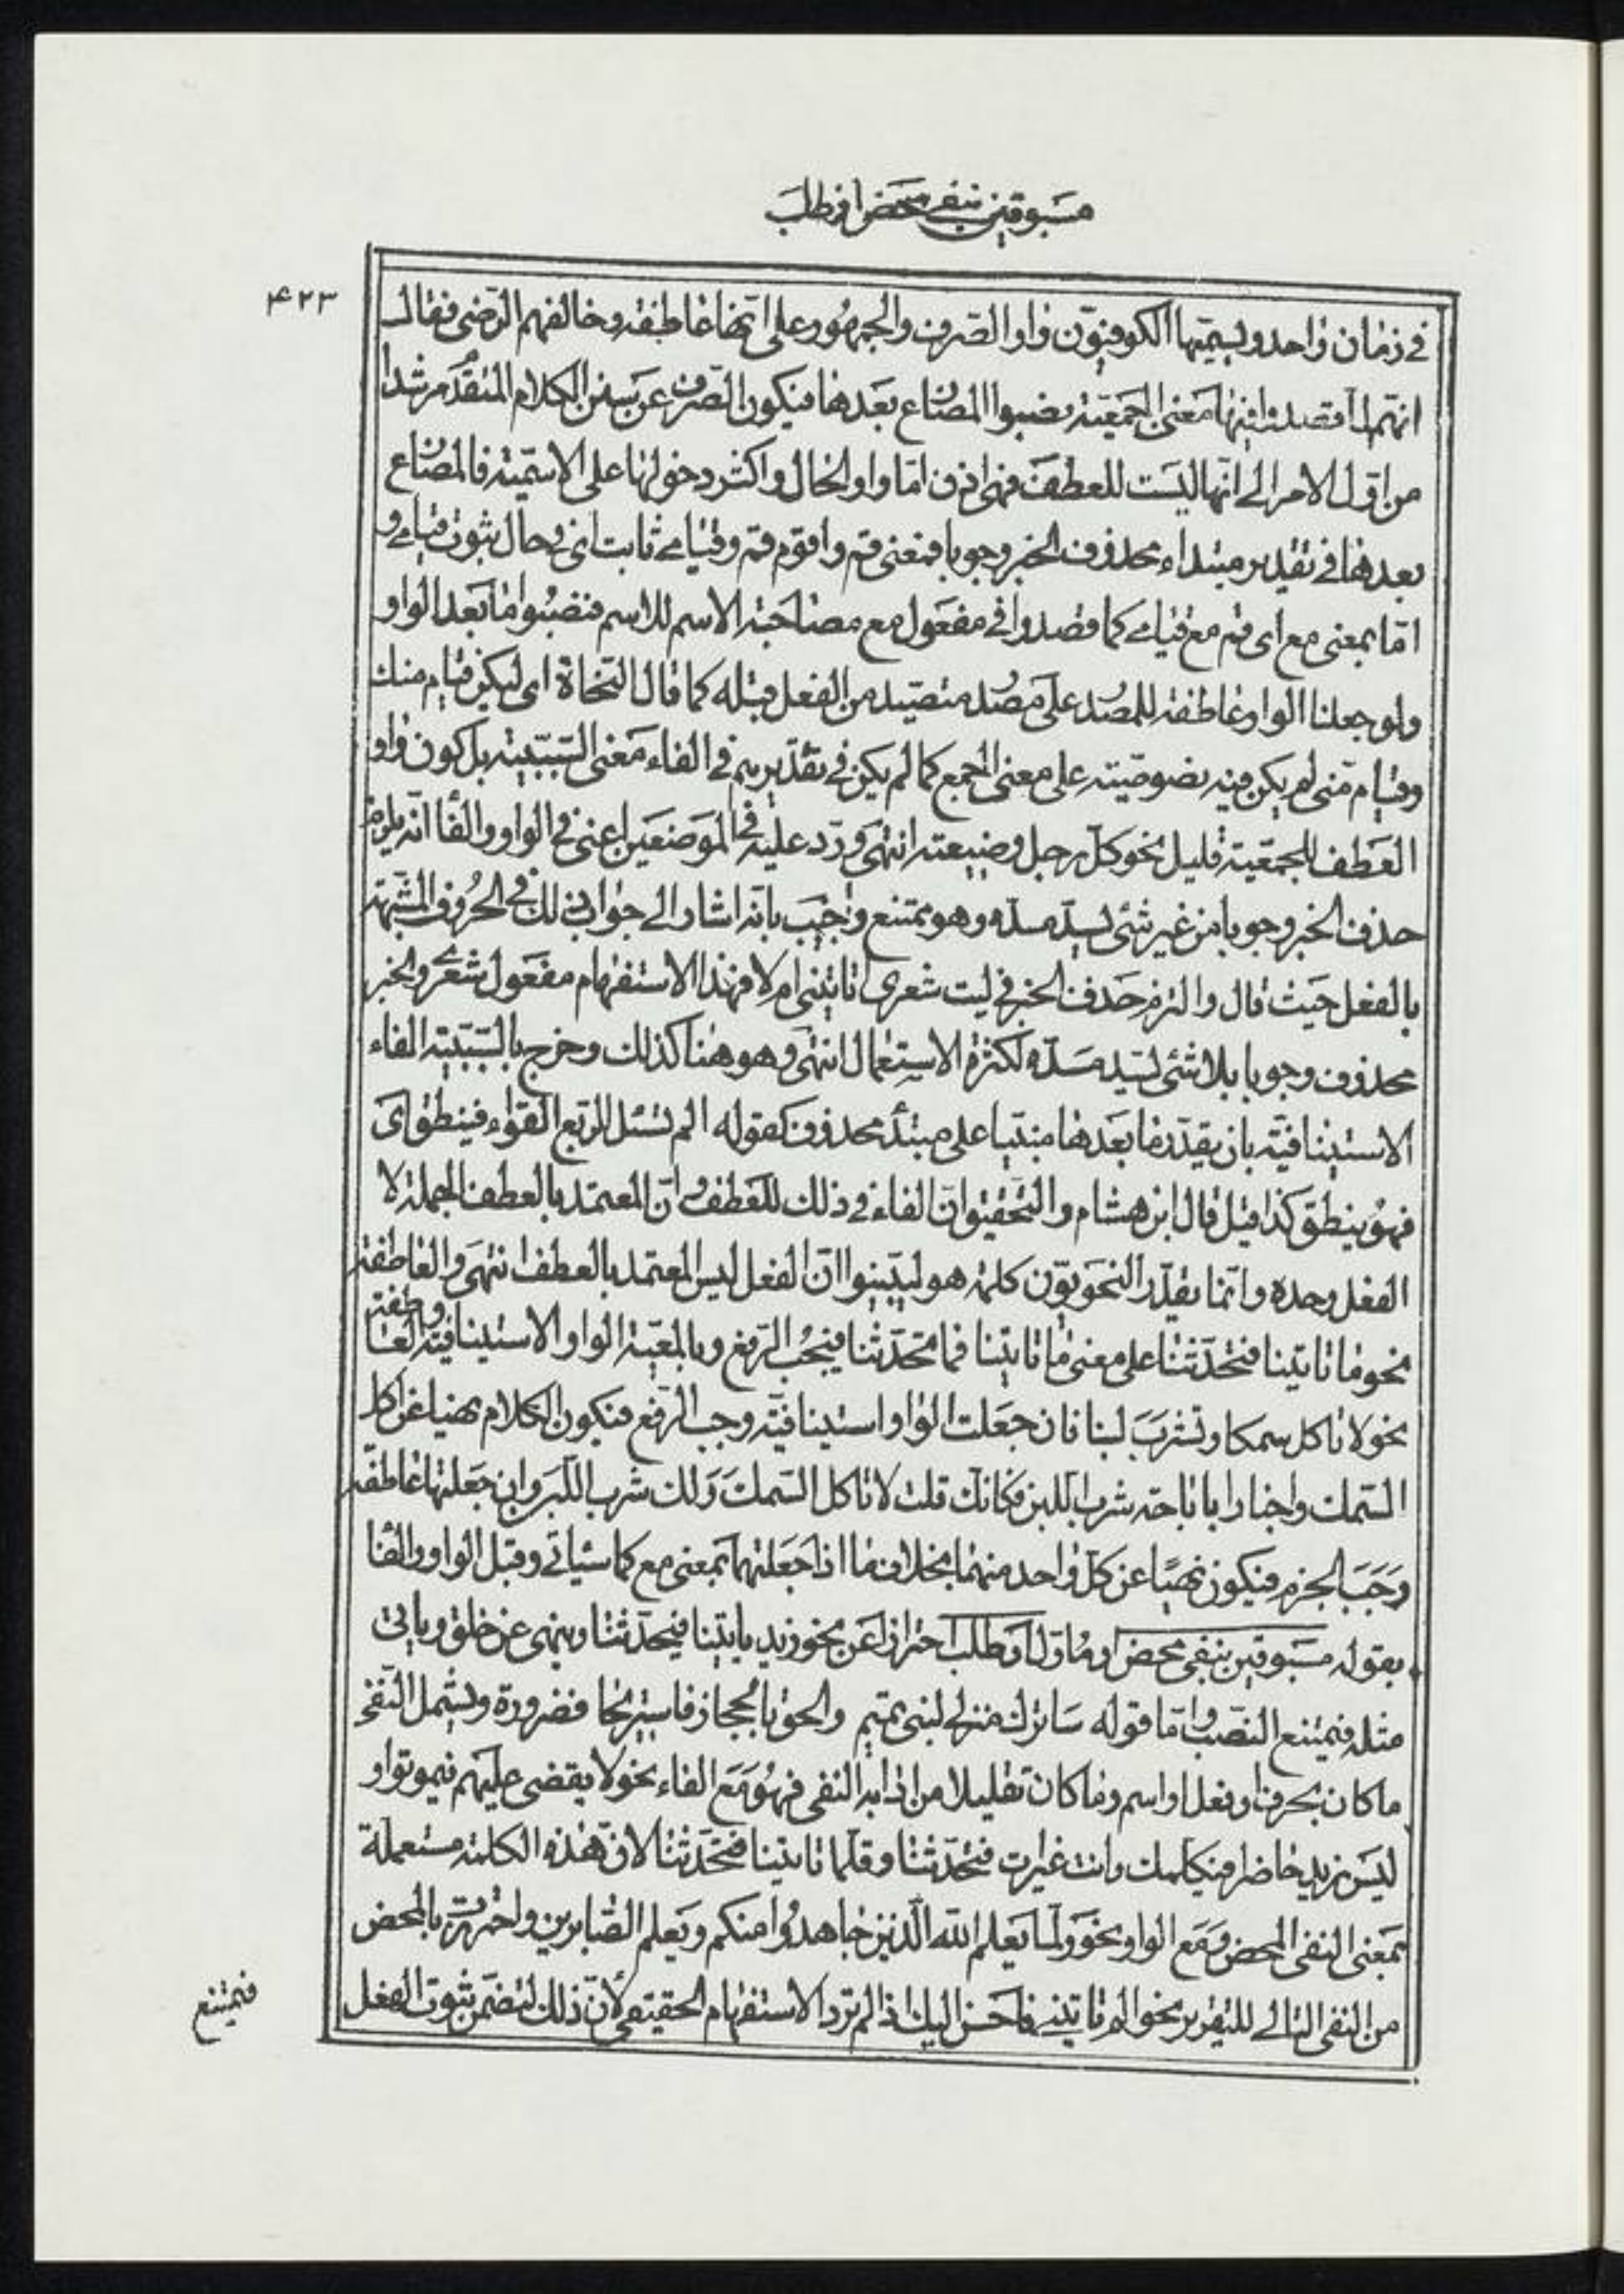 مسبوقين بنفي محض او طلب
۴۲۳
في زمان واحد ويسميها الكوفيون واو الصرف والجمهور على انها عاطفة وخالفهم الرضي فقال
انهم لما قصدوا فيها معنى الجمعية نصبوا المضارع بعدها فيكون الصرف عن سنن الكلام المتقدم مرشدا
من اول الامر الى انها ليست للعطف فهي اذن اما واو الحال واكثر دخولها على الاسمية فالمضارع
بعدها في تقدير مبتداء محذوف الخبر وجوبا فمعنى قم واقوم قم وقيامي ثابت اي في حال ثبوت قيامي و
اما بمعنى مع اي قم مع قيامي كما قصدوا في مفعول مع مصاحبة الاسم للاسم فنصبوا ما بعد الواو
ولو جعلنا الواو عاطفة للمصدر على مصدر متصيد من الفعل قبله كما قال النحاة اي ليكن قيام منك
وقيام مني لم يكن فيه نصوصية على معنى الجمع كما لم يكن في تقديرهم في الفاء معنى السببية بل كون واو
العطف للجمعية قليل نحو كل رجل وضيعته انتهى ورد عليه في الموضعين اعني في الواو والفا انه يلزم
حذف الخبر وجوبا من غير شئ يسد مسده وهو ممتنع واجيب بانه اشار الى جواب ذلك في الحروف المشبهة
بالفعل حيث قال والتزم حذف الخبر في ليت شعري اتاتيني ام لا فهذا الاستفهام مفعول شعري والخبر
محذوف وجوبا بلا شئ يسد مسده لكثرة الاستعمال انتهى وهو هنا كذلك وخرج بالسببية الفاء
الاستينافية بان يقدر ما بعدها مبنيا على مبتدأ محذوف كقوله الم تسئل الربع القواء فينطق اى
فهو ينطق كذا قيل قال ابن هشام والتحقيق ان الفاء في ذلك للعطف وان المعتمد بالعطف الجملة لا
الفعل وحده وانما يقدر النحويون كلمة هو ليبينوا ان الفعل ليس المعتمد بالعطف انتهى والعاطفة
نحو ما تاتينا فتحدثنا على معنى ما تاتينا فما تحدثنا فيجب الرفع وبالمعية الواو الاستينافية والعاطفة
نحو لا تاكل سمكا وتشرب لبنا فان جعلت الواو استينافية وجب الرفع فيكون الكلام نهيا عن اكل
السمك واخبارا باباحة شرب اللبن فكانك قلت لا تاكل السمك ولك شرب اللبن وان جعلتها عاطفة
وجب الجزم فيكون نهيا عن كل واحد منهما بخلاف ما اذا جعلتهما بمعنى مع كما سياتي وقبل الواو والفا
بقوله مسبوقين بنفي محض او مأول او طلب احترازا عن نحو زيد ياتينا فيحدثنا وينهى عن خلق وياتي
مثله فيمتنع النصب واما قوله ساترك منزلي لبني تميم والحق بالحجاز فاستريحا فضرورة ويشمل النفي
ما كان بحرف او فعل او اسم وما كان تقليلا من اذا به النفي فهو مع الفاء نحو لا يقضى عليهم فيموتوا و
ليس زيد حاضرا فيكلمك وانت غير ات فتحدثنا وقلما تاتينا فتحدثنا لان هذه الكلمة مستعملة
بمعنى النفي المحض ومع الواو نحو ولما يعلم الله الذين جاهدوا منكم ويعلم الصابرين واحترز بالمحض
من النفي التالي للتقرير نحو الم تاتيني فاحسن اليك اذا لم ترد الاستفهام الحقيقي لان ذلك لتضمن ثبوت الفعل
فيمتنع